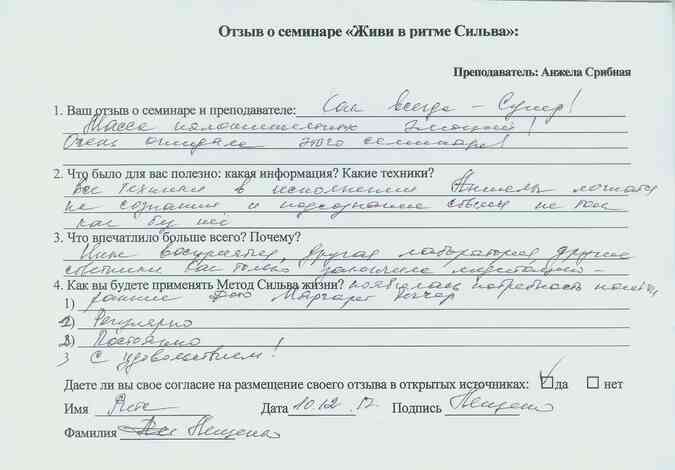 Отзыв о семинаре «Живи в ритме Сильва»:
Преподаватель: Анжела Срибная
1. Ваш отзыв о семинаре и преподавателе: Как всегда - Супер!
Масса положительных эмоций!
Очень ожидала этого семинара!
2. Что было для вас полезно: какая информация? Какие техники?
Все техники в исполнении Анжелы ложатся
на сознание и подсознание совсем не так
как бы не
3. Что впечатлило больше всего? Почему?
восприятия, другая лаборатория, другие
советники как только закончила медитацию -
4. Как вы будете применять Метод Сильва жизни? появилась потребность
1) ранние фото Маргарет
2) Регулярно
3) Постоянно
3 С удовольствием!
Даете ли вы свое согласие на размещение своего отзыва в открытых источниках: да нет
Имя Дата 10.12.17 Подпись
Фамилия